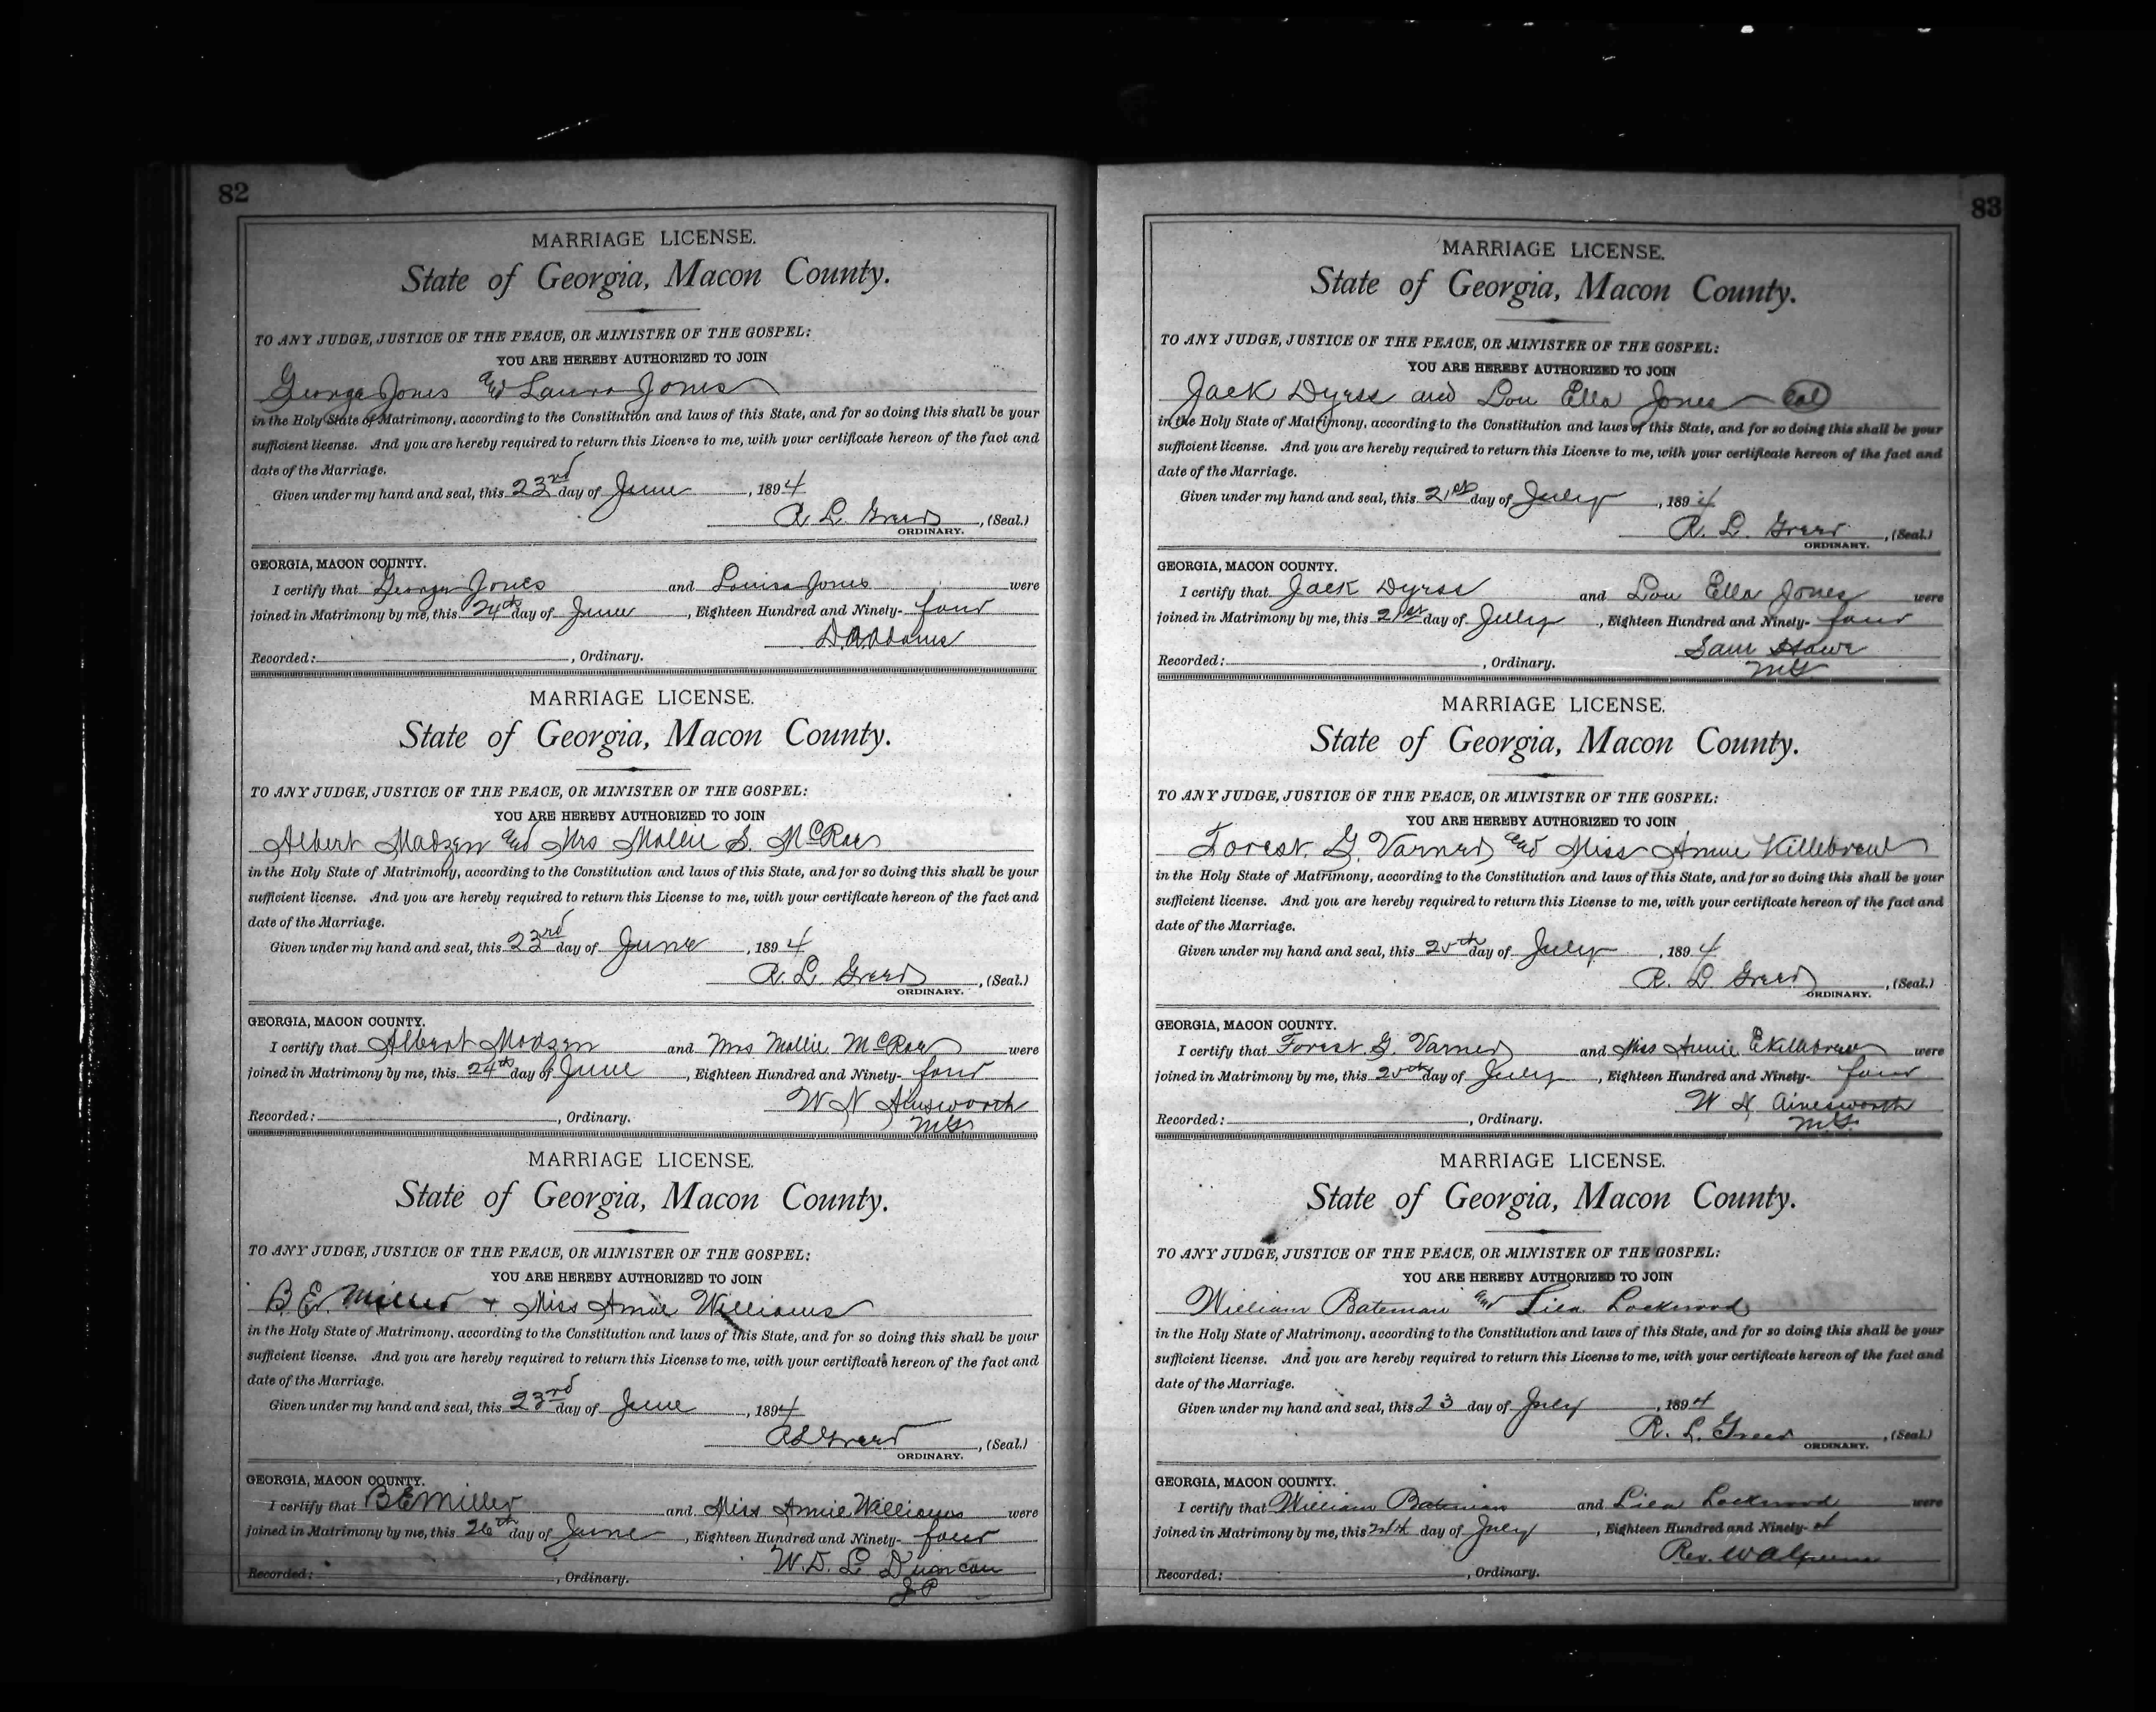 82
MARRIAGE LICENSE.
State of Georgia, Macon County.
TO ANY JUDGE, JUSTICE OF THE PEACE, OR MINISTER OF THE GOSPEL:
YOU ARE HEREBY AUTHORIZED TO JOIN
George Jones and Laura Jones
in the Holy State of Matrimony, according to the Constitution and laws of this State, and for so doing this shall be your
sufficient license. And you are hereby required to return this License to me, with your certificate hereon of the fact and
date of the Marriage.
Given under my hand and seal, this 23rd day of June, 1894
R. L. Greer, (Seal.)
ORDINARY.
GEORGIA, MACON COUNTY.
I certify that George Jones and Louisa Jones were
joined in Matrimony by me, this 24th day of June, Eighteen Hundred and Ninety-four
Adams
Recorded: , Ordinary.
MARRIAGE LICENSE.
State of Georgia, Macon County.
TO ANY JUDGE, JUSTICE OF THE PEACE, OR MINISTER OF THE GOSPEL:
YOU ARE HEREBY AUTHORIZED TO JOIN
Albert Madzen and Mrs Mollie S. McRae
in the Holy State of Matrimony, according to the Constitution and laws of this State, and for so doing this shall be your
sufficient license. And you are hereby required to return this License to me, with your certificate hereon of the fact and
date of the Marriage.
Given under my hand and seal, this 23rd day of June, 1894
R. L. Greer, (Seal.)
ORDINARY.
GEORGIA, MACON COUNTY.
I certify that Albert Madzen and Mrs Mollie McRae were
joined in Matrimony by me, this 24th day of June, Eighteen Hundred and Ninety-four
W N Ainsworth
Recorded: , Ordinary.
MG
MARRIAGE LICENSE.
State of Georgia, Macon County.
TO ANY JUDGE, JUSTICE OF THE PEACE, OR MINISTER OF THE GOSPEL:
YOU ARE HEREBY AUTHORIZED TO JOIN
B. E. Miller + Miss Annie Williams
in the Holy State of Matrimony, according to the Constitution and laws of this State, and for so doing this shall be your
sufficient license. And you are hereby required to return this License to me, with your certificate hereon of the fact and
date of the Marriage.
Given under my hand and seal, this 23rd day of June, 1894
R L Greer, (Seal.)
ORDINARY.
GEORGIA, MACON COUNTY.
I certify that B E Miller and Miss Annie Williams were
joined in Matrimony by me, this 26th day of June, Eighteen Hundred and Ninety-four
W. D. L Duncan
Recorded: , Ordinary.
JP
83
MARRIAGE LICENSE.
State of Georgia, Macon County.
TO ANY JUDGE, JUSTICE OF THE PEACE, OR MINISTER OF THE GOSPEL:
YOU ARE HEREBY AUTHORIZED TO JOIN
Jack Dyess and Lou Ella Jones Col
in the Holy State of Matrimony, according to the Constitution and laws of this State, and for so doing this shall be your
sufficient license. And you are hereby required to return this License to me, with your certificate hereon of the fact and
date of the Marriage.
Given under my hand and seal, this 21st day of July, 1894
R. L. Greer, (Seal.)
ORDINARY.
GEORGIA, MACON COUNTY.
I certify that Jack Dyess and Lou Ella Jones were
joined in Matrimony by me, this 21st day of July, Eighteen Hundred and Ninety-four
Sam
Recorded: , Ordinary.
MG
MARRIAGE LICENSE.
State of Georgia, Macon County.
TO ANY JUDGE, JUSTICE OF THE PEACE, OR MINISTER OF THE GOSPEL:
YOU ARE HEREBY AUTHORIZED TO JOIN
Forest. G. Varner and Miss Annie Killebrew
in the Holy State of Matrimony, according to the Constitution and laws of this State, and for so doing this shall be your
sufficient license. And you are hereby required to return this License to me, with your certificate hereon of the fact and
date of the Marriage.
Given under my hand and seal, this 25th day of July, 1894
R. L Greer, (Seal.)
ORDINARY.
GEORGIA, MACON COUNTY.
I certify that Forest G. Varner and Miss Annie E Killebrew were
joined in Matrimony by me, this 25th day of July, Eighteen Hundred and Ninety-four
W N Ainesworth
Recorded: , Ordinary.
M.G.
MARRIAGE LICENSE.
State of Georgia, Macon County.
TO ANY JUDGE, JUSTICE OF THE PEACE, OR MINISTER OF THE GOSPEL:
YOU ARE HEREBY AUTHORIZED TO JOIN
William Bateman and Lila Lockwood
in the Holy State of Matrimony, according to the Constitution and laws of this State, and for so doing this shall be your
sufficient license. And you are hereby required to return this License to me, with your certificate hereon of the fact and
date of the Marriage.
Given under my hand and seal, this 23 day of July, 1894
R. L. Greer, (Seal.)
ORDINARY.
GEORGIA, MACON COUNTY.
I certify that William Bateman and Lila Lockwood were
joined in Matrimony by me, this day of July, Eighteen Hundred and Ninety-4
Rev.
Recorded: , Ordinary.